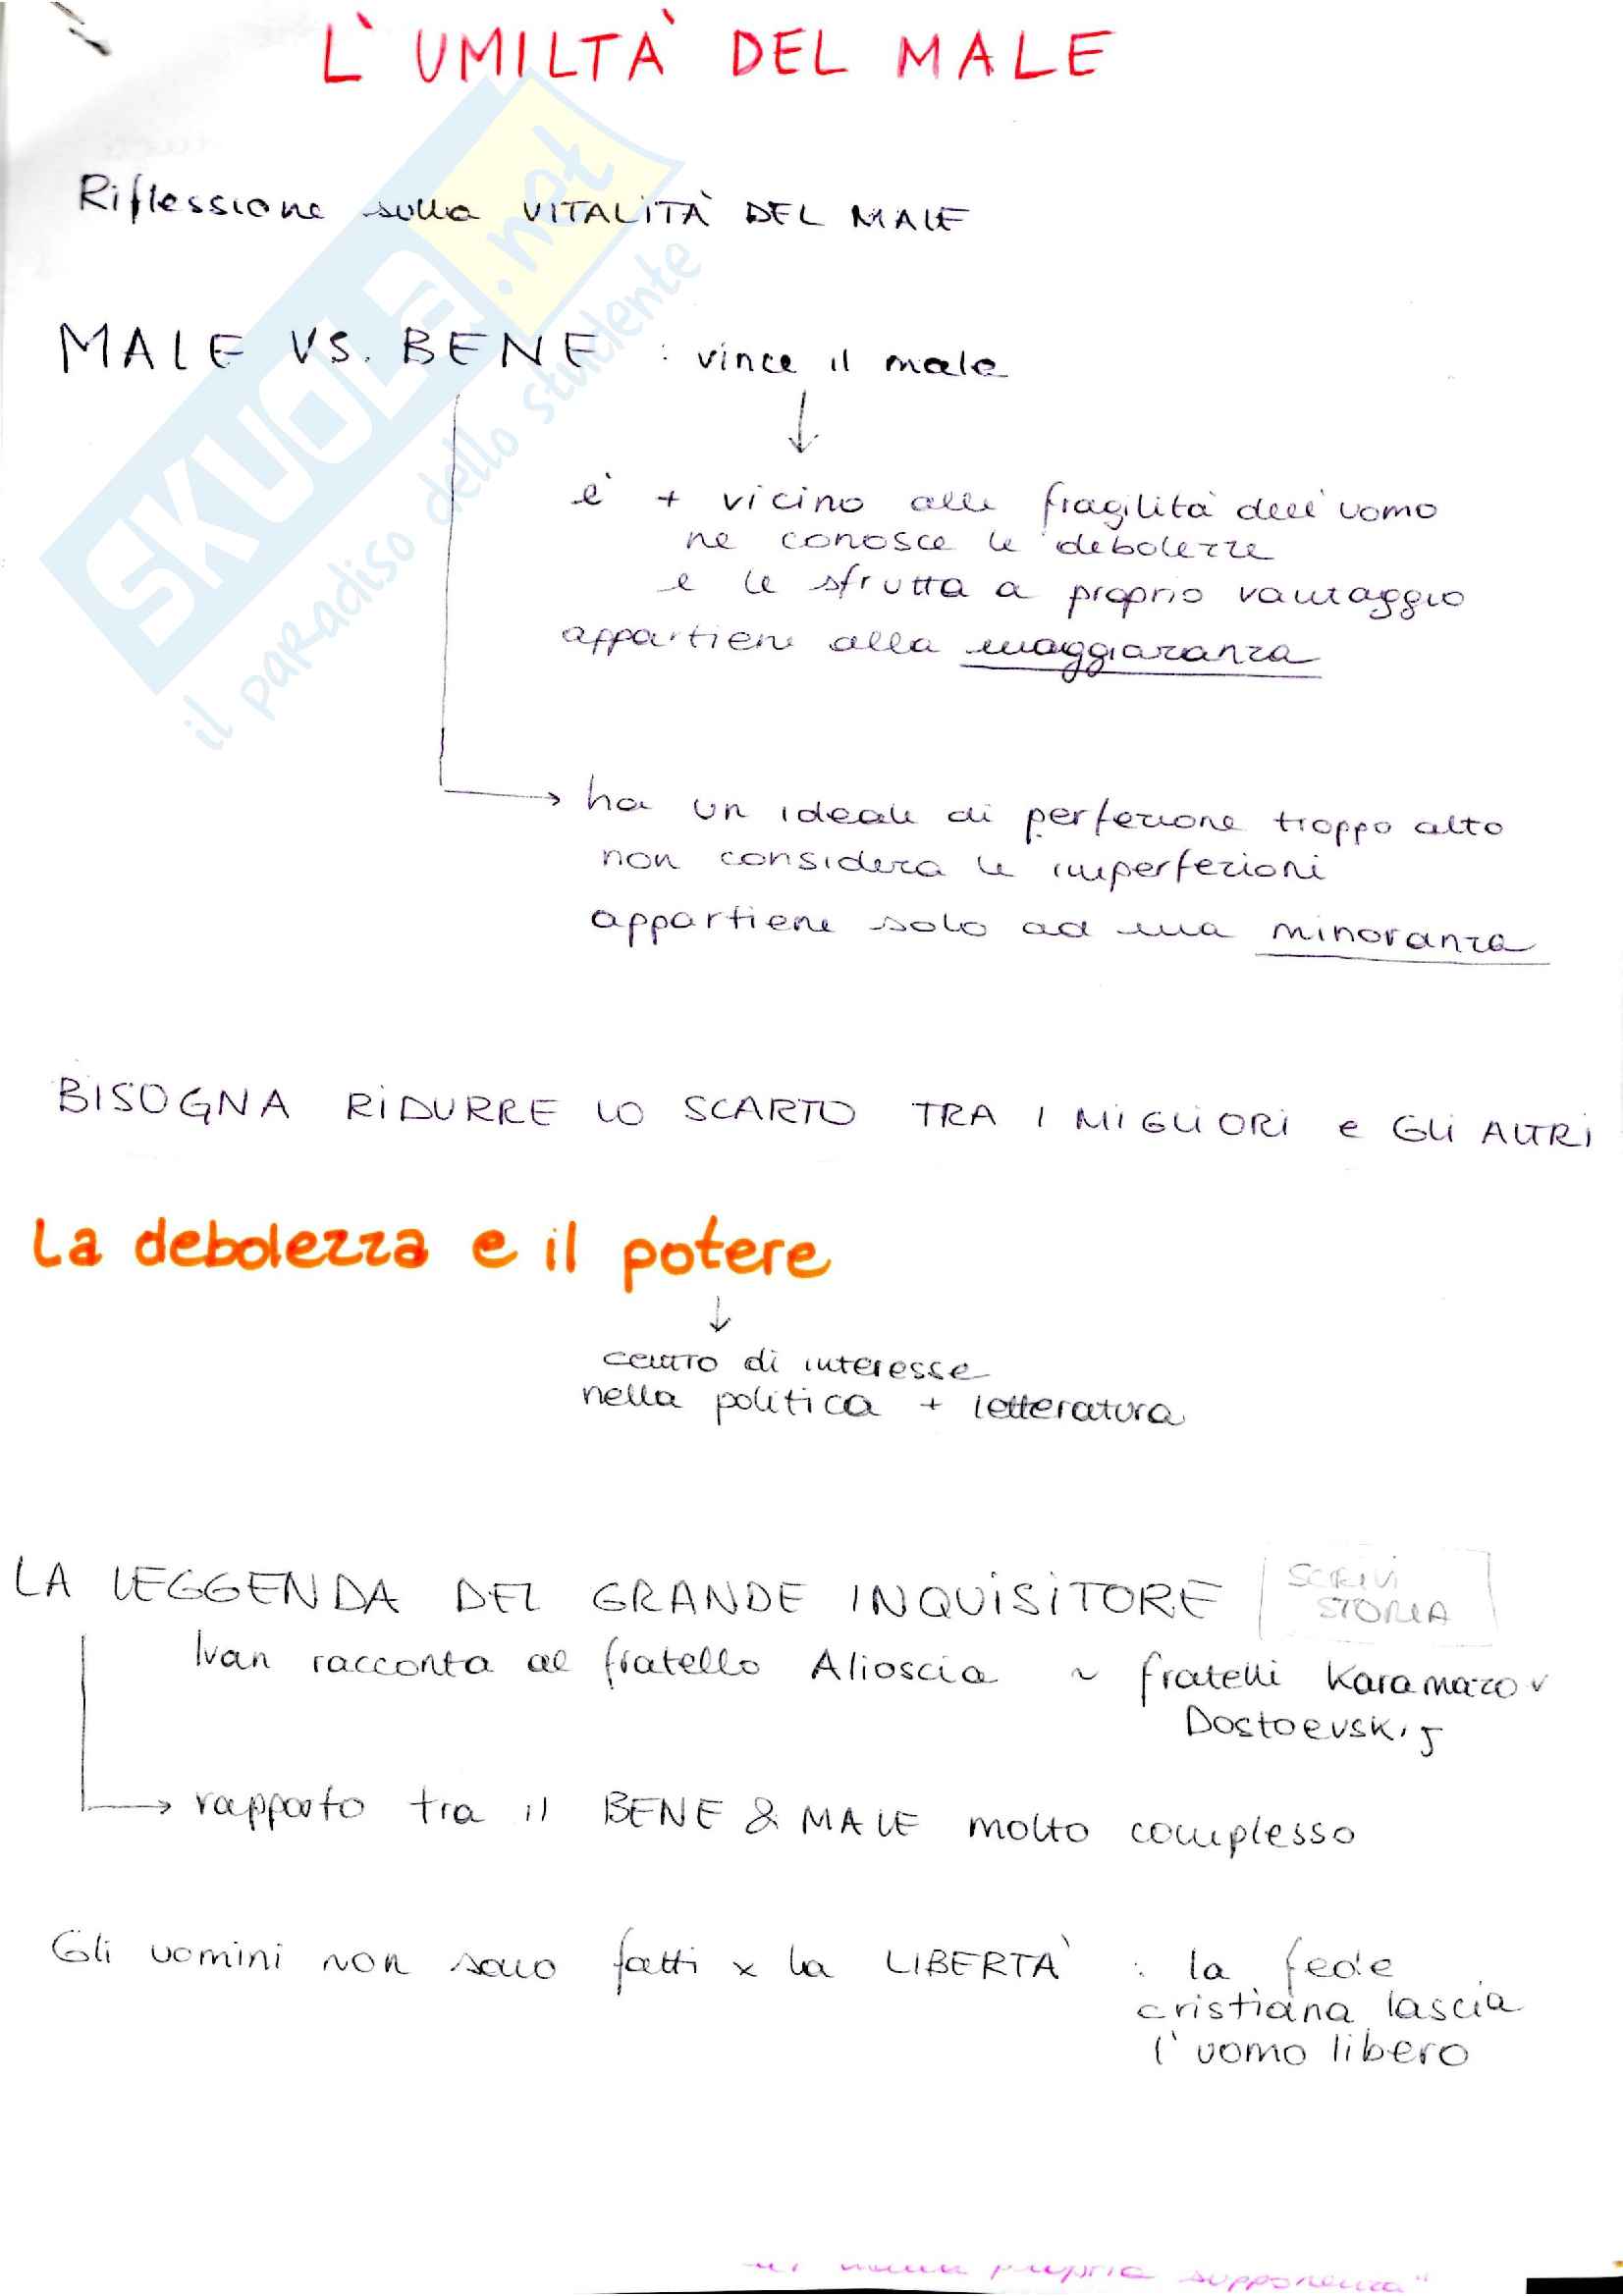 L'UMILTÀ DEL MALE
Riflessione sulla VITALITÀ DEL MALE
MALE VS. BENE : vince il male
↓
è + vicino alle fragilità dell'uomo
ne conosce le debolezze
e le sfrutta a proprio vantaggio
appartiene alla maggioranza
→ ha un ideale di perfezione troppo alto
non considera le imperfezioni
appartiene solo ad una minoranza
BISOGNA RIDURRE LO SCARTO TRA I MIGLIORI e GLI ALTRI
La debolezza e il potere
↓
centro di interesse
nella politica + letteratura
LA LEGGENDA DEL GRANDE INQUISITORE
SCRIVI
STORIA
Ivan racconta al fratello Alioscia ~ fratelli Karamazov
Dostoevskij
→ rapporto tra il BENE & MALE molto complesso
Gli uomini non sono fatti x la LIBERTÀ : la fede
cristiana lascia
l'uomo libero
propria supponenza"
SKUOLA.net
il paradiso dello studente